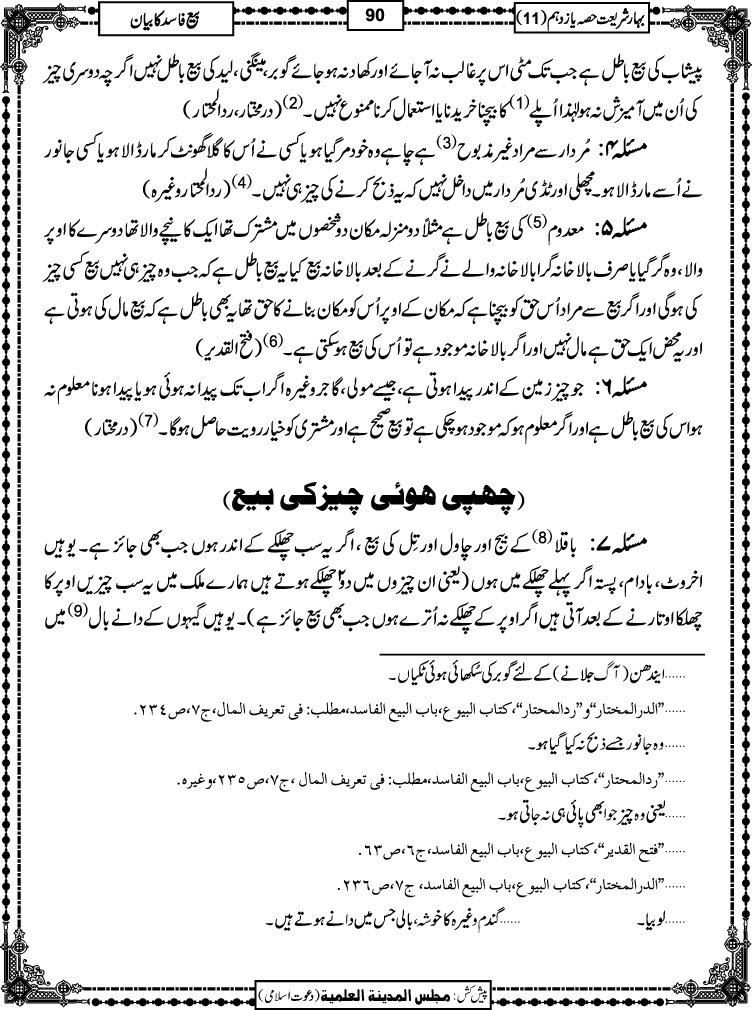 بہارِ شریعت حصہ یازدہم (11)
90
بیع فاسد کا بیان
پیشاب کی بیع باطل ہے جب تک مٹی اس پر غالب نہ آجائے اور کھاد نہ ہوجائے گوبر، مینگنی، لید کی بیع باطل نہیں اگرچہ دوسری چیز
کی اُن میں آمیزش نہ ہو لہٰذا اُپلے (1) کا بیچنا خریدنا یا استعمال کرنا ممنوع نہیں۔ (2) (درمختار، ردالمحتار)
مسئلہ ۴: مُردار سے مراد غیر مذبوح (3) ہے چاہے وہ خود مر گیا ہو یا کسی نے اُس کا گلا گھونٹ کر مار ڈالا ہو یا کسی جانور
نے اُسے مار ڈالا ہو۔ مچھلی اور ٹڈی مُردار میں داخل نہیں کہ یہ ذبح کرنے کی چیز ہی نہیں۔ (4) (ردالمحتار وغیرہ)
مسئلہ ۵: معدوم (5) کی بیع باطل ہے مثلاً دو منزلہ مکان دو شخصوں میں مشترک تھا ایک کا نیچے والا تھا دوسرے کا اوپر
والا، وہ گر گیا یا صرف بالا خانہ گرا بالا خانہ والے نے گرنے کے بعد بالا خانہ بیع کیا یہ بیع باطل ہے کہ جب وہ چیز ہی نہیں بیع کسی چیز
کی ہوگی اور اگر بیع سے مراد اُس حق کو بیچنا ہے کہ مکان کے اوپر اُس کو مکان بنانے کا حق تھا یہ بھی باطل ہے کہ بیع مال کی ہوتی ہے
اور یہ محض ایک حق ہے مال نہیں اور اگر بالا خانہ موجود ہے تو اُس کی بیع ہوسکتی ہے۔ (6) (فتح القدیر)
مسئلہ ۶: جو چیز زمین کے اندر پیدا ہوتی ہے، جیسے مولی، گاجر وغیرہ اگر اب تک پیدا نہ ہوئی ہو یا پیدا ہونا معلوم نہ
ہو اس کی بیع باطل ہے اور اگر معلوم ہو کہ موجود ہوچکی ہے تو بیع صحیح ہے اور مشتری کو خیارِ رویت حاصل ہوگا۔ (7) (درمختار)
(چھپی ہوئی چیز کی بیع)
مسئلہ ۷: باقلا (8) کے بیج اور چاول اور تِل کی بیع، اگر یہ سب چھلکے کے اندر ہوں جب بھی جائز ہے۔ یوہیں
اخروٹ، بادام، پستہ اگر پہلے چھلکے میں ہوں (یعنی ان چیزوں میں دو۲ چھلکے ہوتے ہیں ہمارے ملک میں یہ سب چیزیں اوپر کا
چھلکا اوتارنے کے بعد آتی ہیں اگر اوپر کے چھلکے نہ اُترے ہوں جب بھی بیع جائز ہے)۔ یوہیں گیہوں کے دانے بال (9) میں
......ایندھن (آگ جلانے) کے لئے گوبر کی سُکھائی ہوئی ٹکیاں۔
......”الدرالمختار“ و ”ردالمحتار“، کتاب البیوع، باب البیع الفاسد، مطلب: فی تعریف المال، ج۷، ص۲۳۴.
......وہ جانور جسے ذبح نہ کیا گیا ہو۔
......”ردالمحتار“، کتاب البیوع، باب البیع الفاسد، مطلب: فی تعریف المال، ج۷، ص۲۳۵، وغیرہ.
......یعنی وہ چیز جو ابھی پائی ہی نہ جاتی ہو۔
......”فتح القدیر“، کتاب البیوع، باب البیع الفاسد، ج۶، ص۶۳.
......”الدرالمختار“، کتاب البیوع، باب البیع الفاسد، ج۷، ص۲۳۶.
......لوبیا۔ ......گندم وغیرہ کا خوشہ، بالی جس میں دانے ہوتے ہیں۔
پیش کش: مجلس المدینۃ العلمیۃ (دعوت اسلامی)